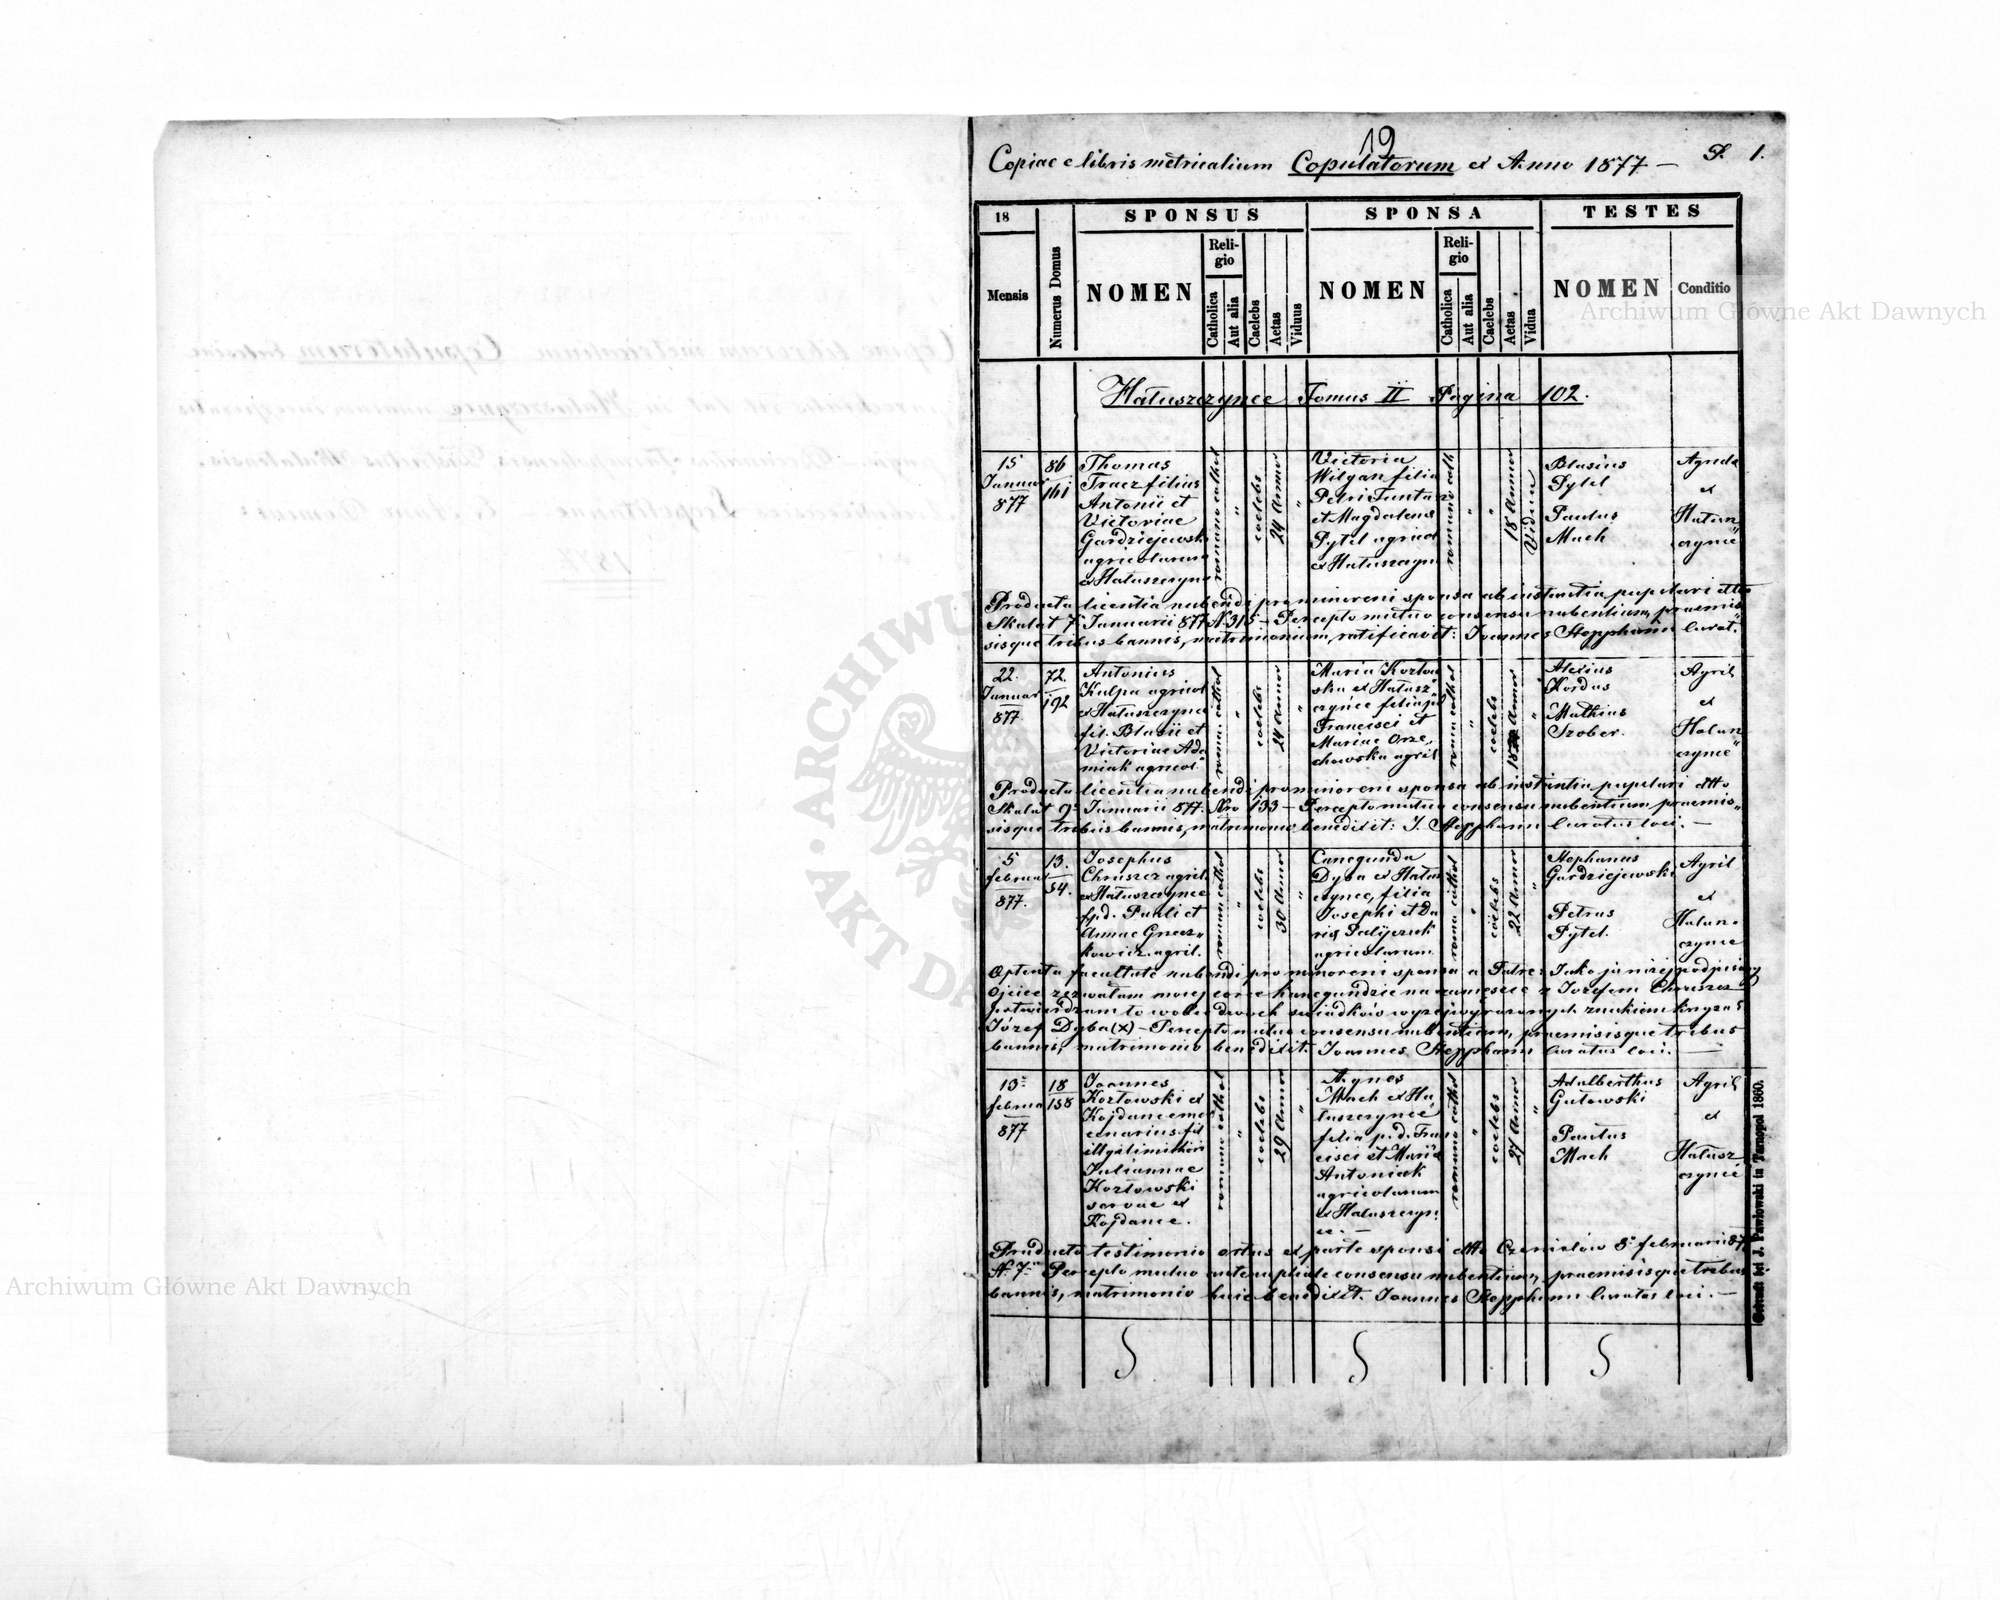 19
Copiae e libris metricalium Copulatorum ex Anno 1877 — P. 1.
18
SPONSUS
SPONSA
TESTES
Mensis
Numerus Domus
NOMEN
Religio
Catholica
Aut alia
Caelebs
Aetas
Viduus
NOMEN
Religio
Catholica
Aut alia
Caelebs
Aetas
Vidua
NOMEN
Conditio
Hałuszczynce Tomus II Pagina 102.
15
Januar
877
86
161
Thomas
Tracz filius
Antonii et
Victoriae
Gardziejewski
agricolarum
ex Hałuszczyn
romano cathol
"
coelebs
24 annor
"
Victoria
Wilgan filia
Petri Tuntu
et Magdalena
Pytel agricol
ex Hałuszczyn
romano cath
"
"
18 annor
Vidua
Blasius
Pytel
Paulus
Mach
Agricol
ex
Hałun
czynce
Producta licentia nubendi pro minoreni sponsa ab instantia pupilari dtto
Skałat 7 Januarii 877 N. 315 – Percepto mutuo consensu nubentium, praemis
sisque tribus bannis, matrimonium, ratificavit: Joannes Stepphann Curat.
22.
Januar
877
72.
192
Antonius
Kulpa agricol
ex Hałuszczynce
fil. Blasii et
Victoriae Ada
miak agricol
roma: cathol
"
coelebs
24 annor
"
Maria Kozłow
ska ex Hałusz
czynce filia pd
Francisci et
Mariae Orze,
chowska agril
roma cathol
"
coelebs
18 annor
"
Alexius
Kordas
Mathias
Szober.
Agril
ex
Hałun
czynce
Producta licentia nubendi pro minoreni sponsa ab instantia pupilari dtto
Skałat 9 Januarii 877. Nro 133 – Percepto mutuo consensu nubentium praemis„
sisque tribus bannis, matrimonio benedixit: J. Stepphann Curatus loci. —
5
februar
877.
13.
54.
Josephus
Chruszcz agril.
ex Hałuszczynce
f.p.d. Pauli et
Annae Gnacz„
kowicz agril.
romano cathol
"
coelebs
30 annor
"
Cunegunda
Dyba ex Hałus
czynce, filia
Josephi et Da
ria Palijczuk
agricolarum
roma cathol
"
coelebs
22 annor
"
Stephanus
Gardziejewski
Petrus
Pytel.
Agril
ex
Hałun.
czynce
Optenta facultate nubendi pro minoreni sponsa a Patre: Jako ja niżej podpisany
Ojciec zezwalam mojej córce Kunegundzie na zamęscie z Józefem Chruszcz
potwierdzam to wobec dwoch swiadków wyżej wyrażonych znakiem krzyża
Józef Dyba (X) – Percepto mutuo consensu nubentium, praemisisque tribus
bannis, matrimonio benedixit. Joannes Stepphann Curatus loci. —
13
februa
877
18
158
Joannes
Kozłowski ex
Kojdance mer
cenarius fil
illgitimi thori
Juliannae
Kozłowski
servae ex
Kojdance.
romano cathol
"
coelebs
29 annor
"
Agnes
Mach ex Ha
łuszczynce
filia p.d. Fran
cisci et Maria
Antoniak
agricolarum
ex Hałuszczyn
ce. —
romano cathol
"
coelebs
27 annor
"
Adalberthus
Gutowski
Paulus
Mach
Agril
ex
Hałusz
czynce
Producto testimonio ortus ex parte sponsi dtto Czernilów 8 februarii 87
N. 7 Percepto mutuo antenuptiale consensu nubentium, praemisisque tribus
bannis, matrimonio huic benedixit. Joannes Stepphann Curatus loci. —
Gedruckt bei J. Pawłowski in Tarnopol 1860.
Archiwum Główne Akt Dawnych
Archiwum Główne Akt Dawnych